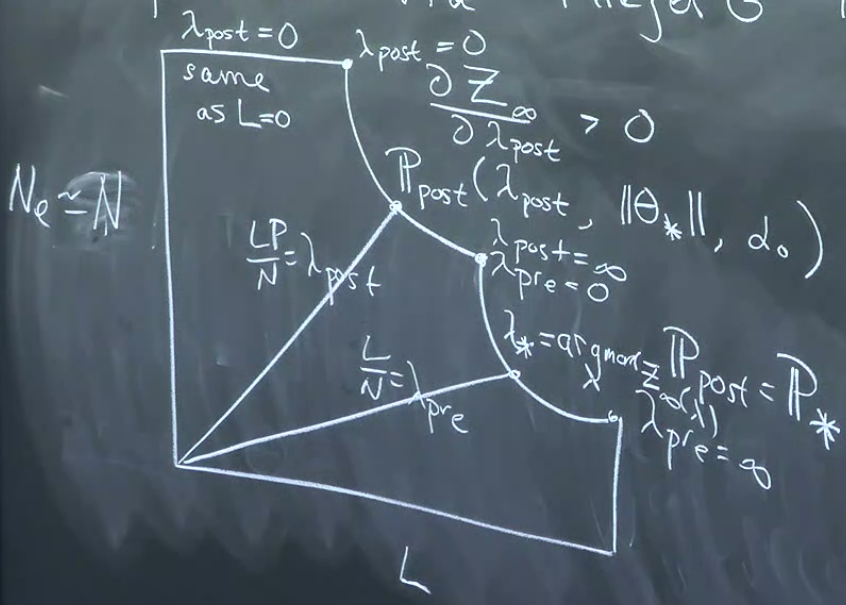 λpost = 0
same
as L=0
λpost = 0
∂Z∞/∂λpost > 0
Ne ≃ N
ℙpost(λpost, ||Θ*||, α₀)
LP/N = λpost
λpost = ∞
λpre = 0
L/N = λpre
λ* = argmax Z∞(λ)
λ
ℙpost = ℙ*
λpre = ∞
L